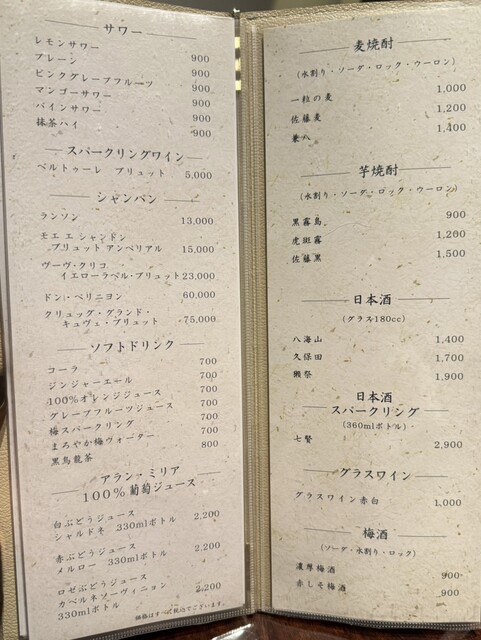 サワー
レモンサワー
プレーン 900
ピンクグレープフルーツ 900
マンゴーサワー 900
パインサワー 900
抹茶ハイ 900
900
スパークリングワイン
ベルトゥーレ ブリュット 5,000
シャンパン
ランソン 13,000
モエ エ シャンドン
ブリュット アンペリアル 15,000
ヴーヴ・クリコ
イエローラベル・ブリュット 23,000
ドン・ペリニヨン 60,000
クリュッグ・グランド・
キュヴェ・ブリュット 75,000
ソフトドリンク
コーラ 700
ジンジャーエール 700
100%オレンジジュース 700
グレープフルーツジュース 700
梅スパークリング 700
まろやか梅ウォーター 700
黒烏龍茶 800
アラン・ミリア
100%葡萄ジュース
白ぶどうジュース
シャルドネ 330mlボトル 2,200
赤ぶどうジュース
メルロー 330mlボトル 2,200
ロゼぶどうジュース
カベルネソーヴィニョン 2,200
330mlボトル
価格はすべて税込でございます。
麦焼酎
(水割り・ソーダ・ロック・ウーロン)
一粒の麦 1,000
佐藤麦 1,200
兼八 1,400
芋焼酎
(水割り・ソーダ・ロック・ウーロン)
黒霧島 900
虎斑霧 1,200
佐藤黒 1,500
日本酒
(グラス180cc)
八海山 1,400
久保田 1,700
獺祭 1,900
日本酒
スパークリング
(360mlボトル)
七賢 2,900
グラスワイン
グラスワイン赤白 1,000
梅酒
(ソーダ・水割り・ロック)
濃厚梅酒 900
赤しそ梅酒 900